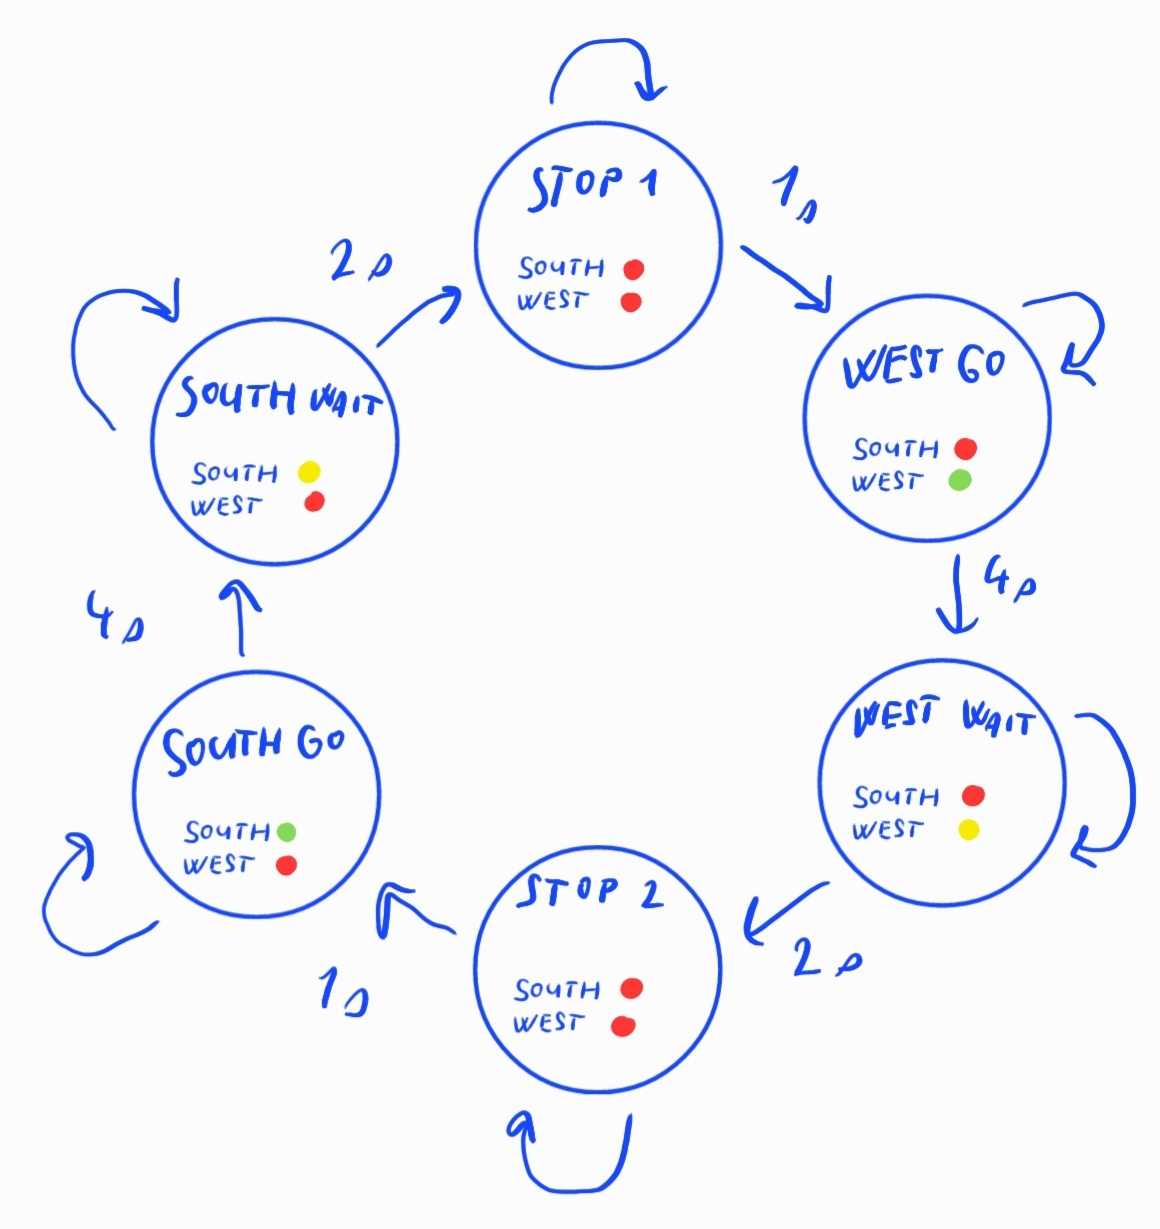 STOP 1
SOUTH
WEST
1s
WEST GO
SOUTH
WEST
4s
WEST WAIT
SOUTH
WEST
2s
STOP 2
SOUTH
WEST
1s
SOUTH GO
SOUTH
WEST
4s
SOUTH WAIT
SOUTH
WEST
2s